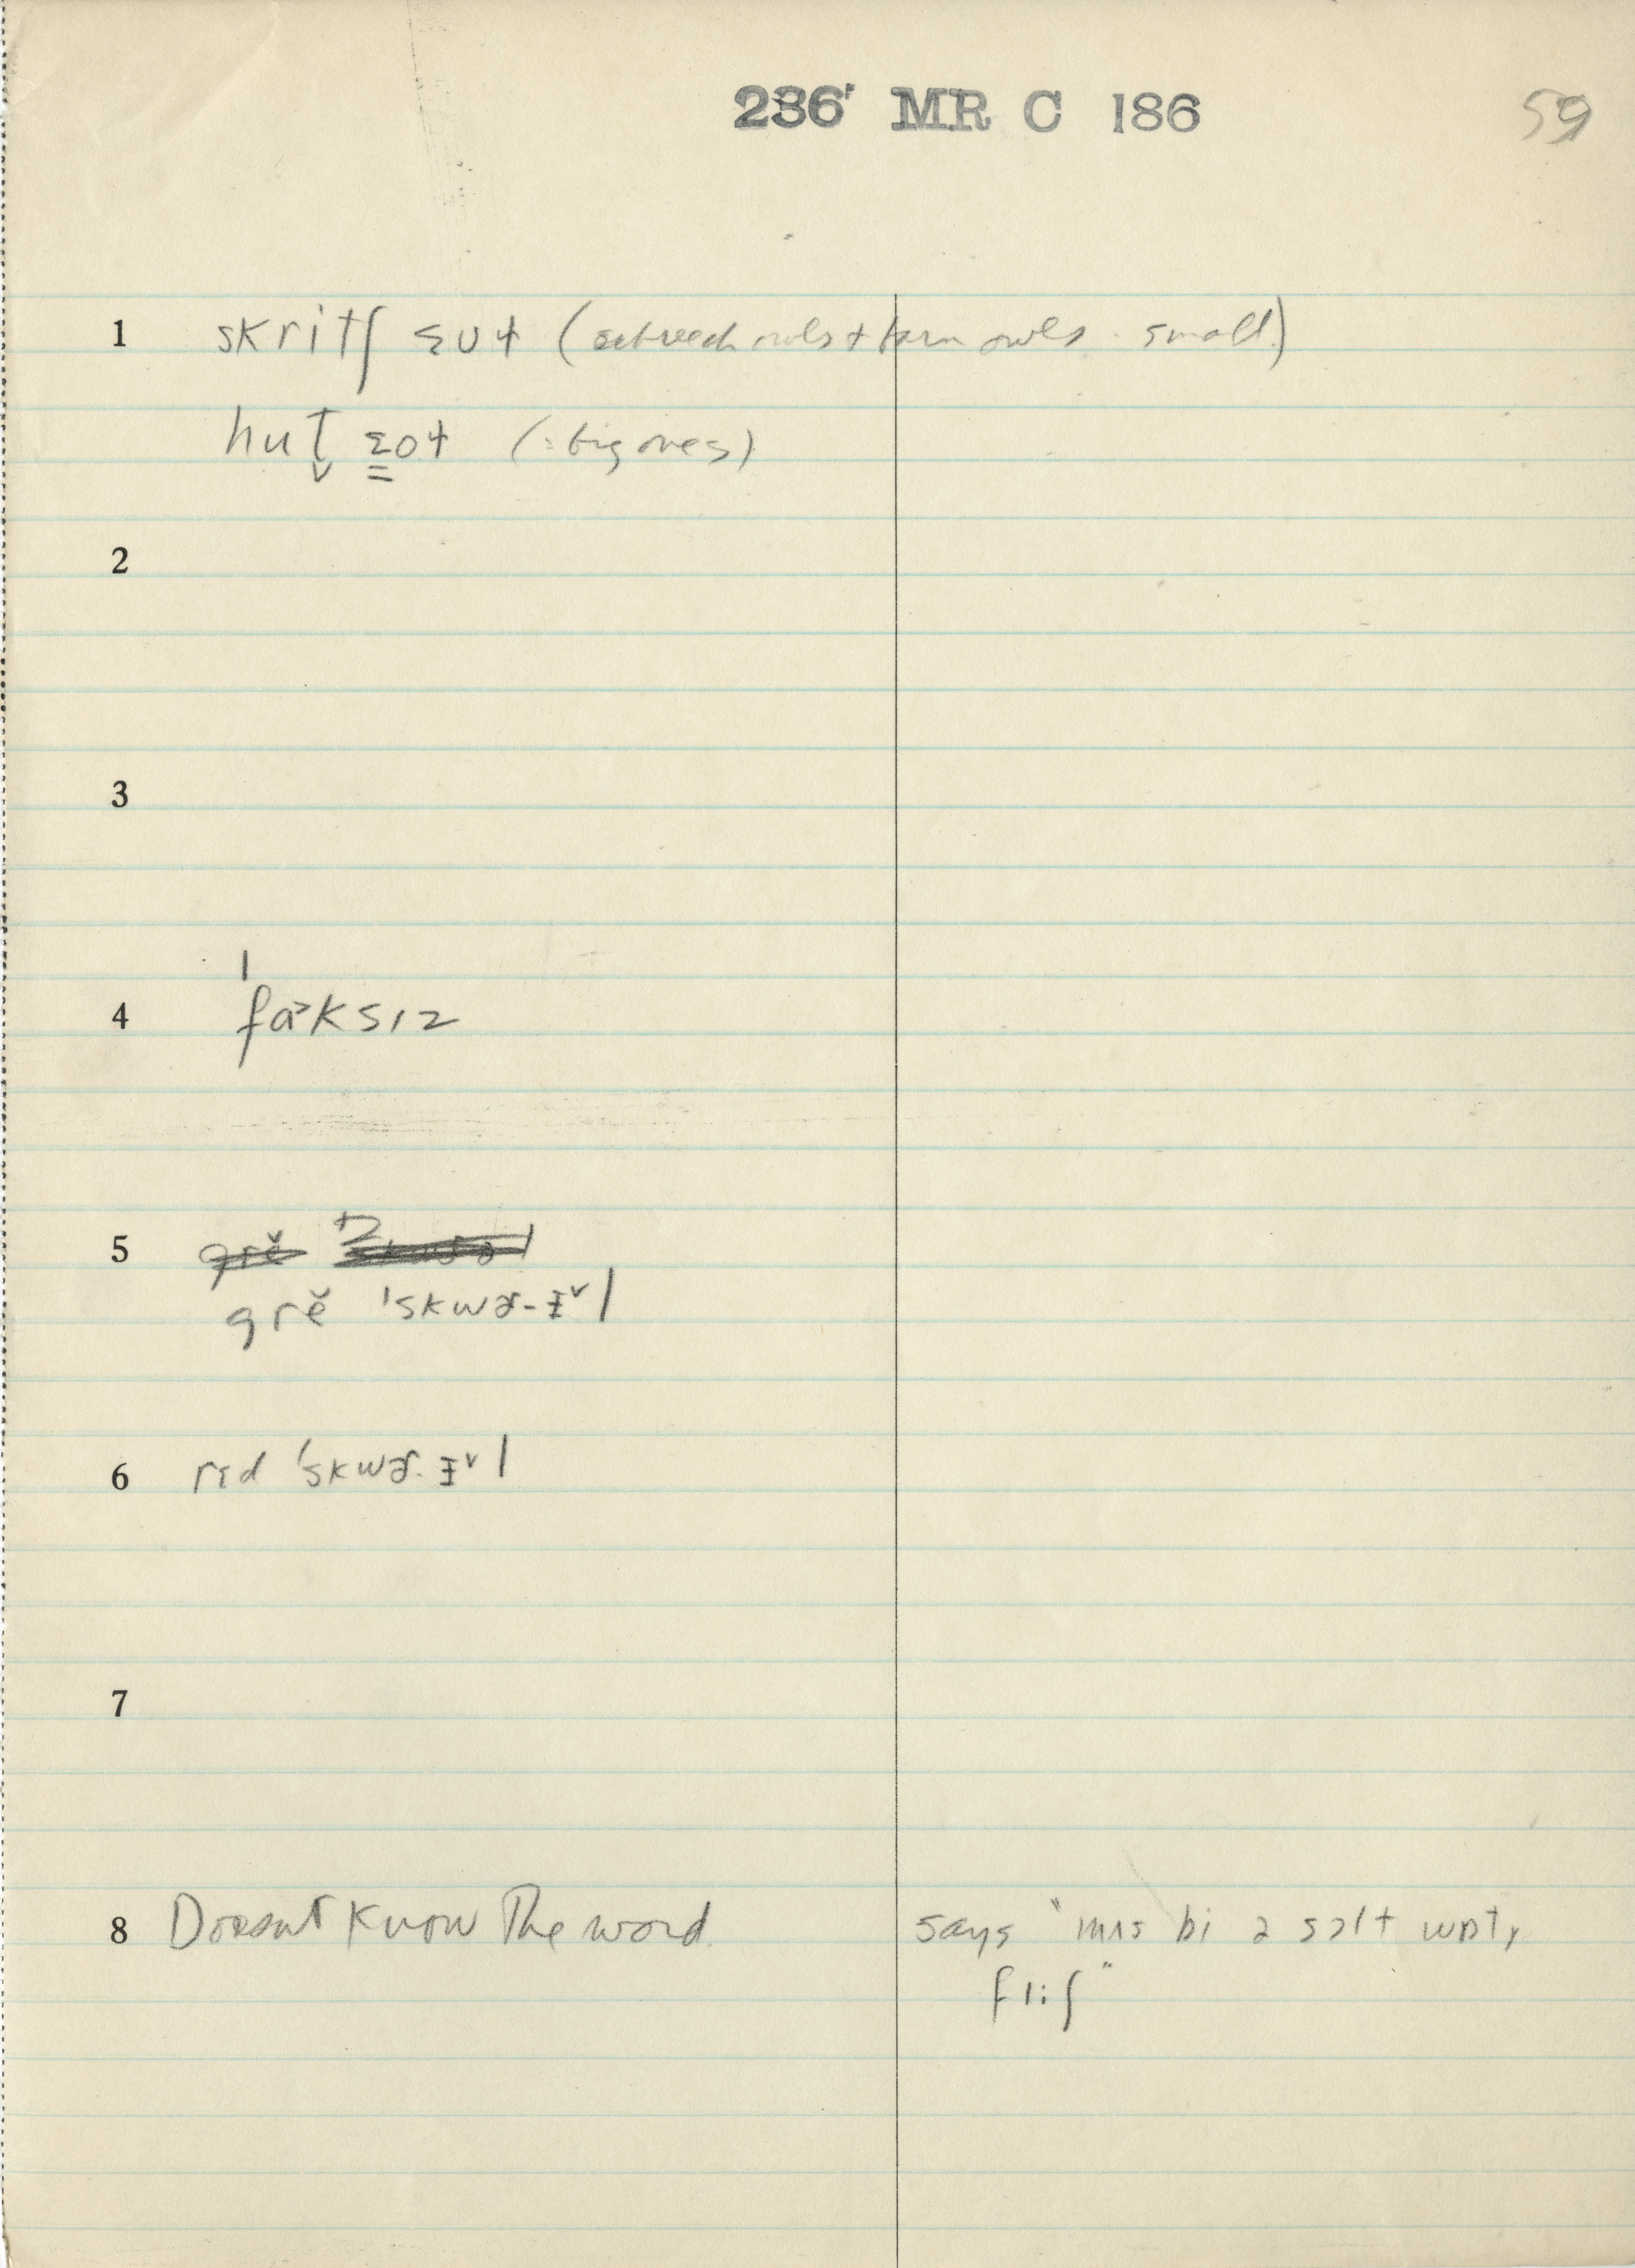 236' MR C 186 59
1 skritʃ (screech owls + barn owls. small)
hut̬ (: big ones)
2
3
4 ˈfa˃ksɪz
5
grĕ ˈskwɚ-
6 rɛd ˈskwɚ.
7
8 Doesn't Know The word. says "mʌs bi ə sɔlt wɒtɚ
fliʃ"